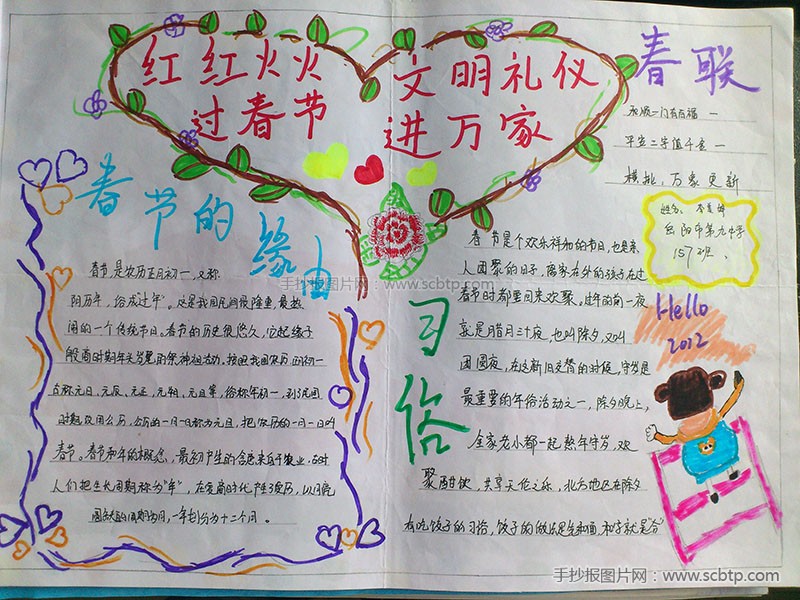 红红火火
过春节
文明礼仪
进万家
春联
平安二字值千金
横批，万象更新
姓名：
岳阳市第九中学
157班
Hello
2012
春节的
缘由
春节是农历正月初一，又称
阴历年，俗成过年"。这是我国民间很隆重，最热
闹的一个传统节日。春节的历史很悠久，它起缘于
殷商时期年头岁尾的祭神祖活动。按照我国农历正初一
古称元日，元辰，元正，元朔，元旦等，俗称年初一，到了民国
时期改用公历，公历的一月一日称为元旦，把农历的一月一日叫
春节。春节和年的概念，最初产生的含意来自于农业，古时
人们把生长周期称为"年"，在夏商时代产生了夏历，以月亮
圆缺的周期为月，一年划分为十二个月。
习俗
春节是个欢乐祥和的节日，也是亲
人团聚的日子，离家在外的孩子在过
春节时都要回来欢聚。过年的前一夜
就是腊月三十夜，也叫除夕，又叫
团圆夜，在这新旧交替的时候，守岁是
最重要的年俗活动之一，除夕晚上，
全家老小都一起熬年守岁，欢
聚酣饮，共享天伦之乐，北方地区在除夕
有吃饺子的习俗，饺子的做法是先和面，和字就是"合"
手抄报图片网：www.scbtp.com
手抄报图片网：www.scbtp.com